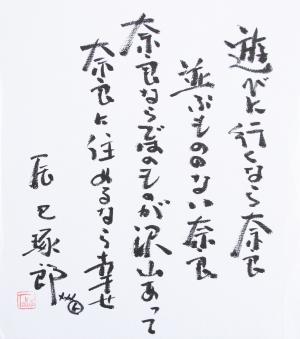 遊びに行くなら奈良
並ぶもののない奈良
奈良ならではのものが沢山あって
奈良に住めるなら幸せ
辰巳琢郎